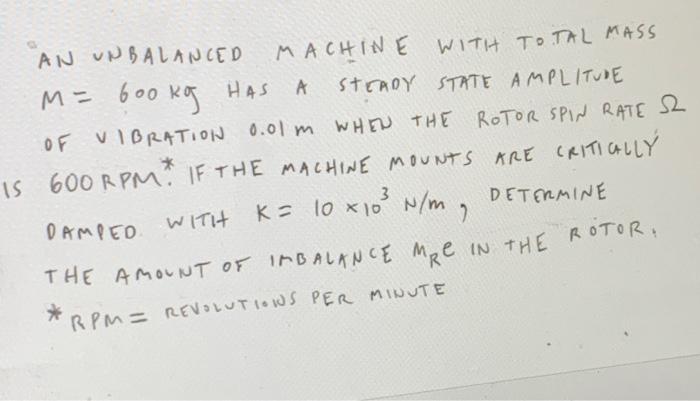 AN UNBALANCED MACHINE WITH TOTAL MASS
M = 600 kg HAS A STEADY STATE AMPLITUDE
OF VIBRATION 0.01 m WHEN THE ROTOR SPIN RATE Ω
IS 600 RPM.* IF THE MACHINE MOUNTS ARE CRITICALLY
DAMPED WITH K = 10 × 10³ N/m, DETERMINE
THE AMOUNT OF IMBALANCE MRe IN THE ROTOR.
* RPM = REVOLUTIONS PER MINUTE